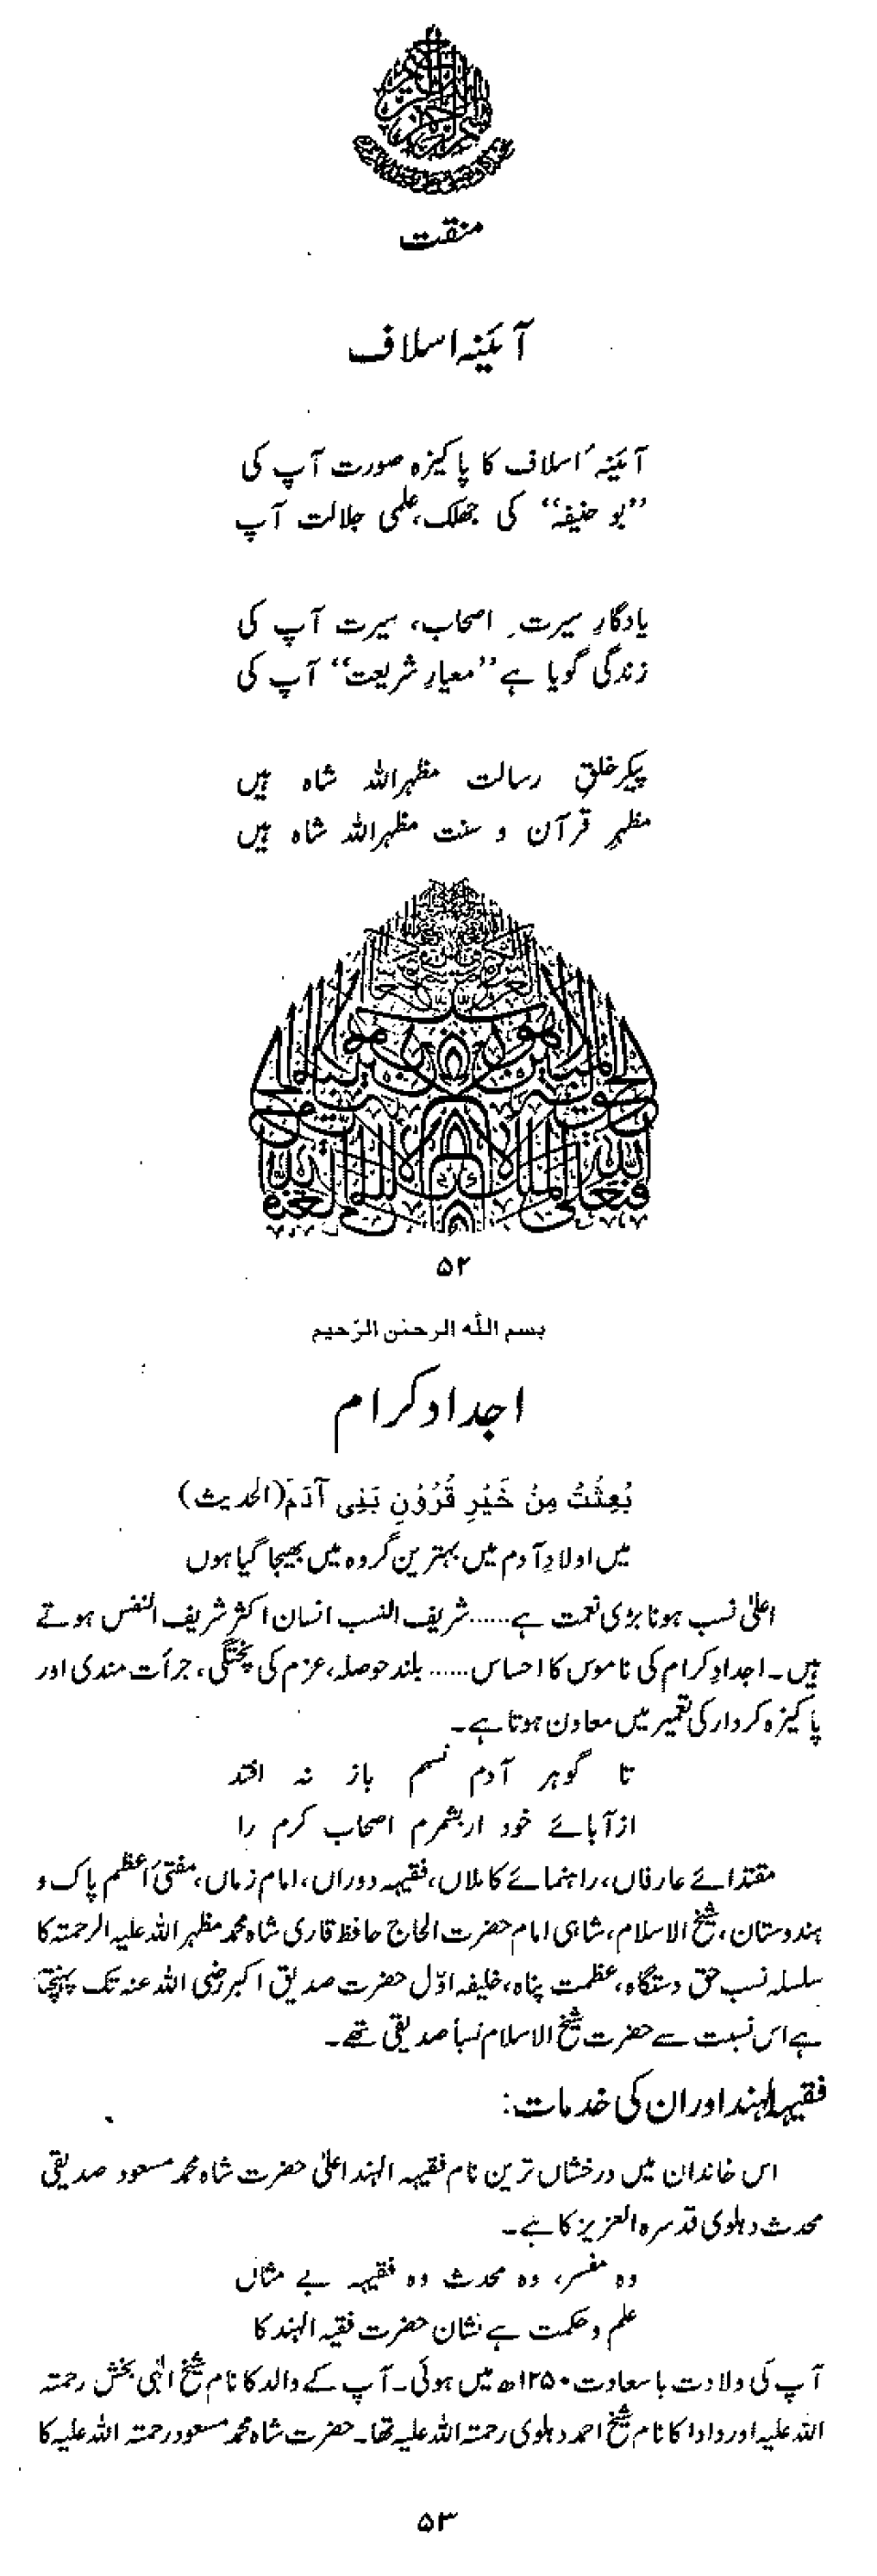 منقت
آئینہ اسلاف
آئینہٴ اسلاف کا پاکیزہ صورت آپ کی
”بو حنیفہ“ کی جھلک، علمی جلالت آپ
یادگارِ سیرتِ اصحاب، سیرت آپ کی
زندگی گویا ہے ”معیارِ شریعت“ آپ کی
پیکرِ خلقِ رسالت مظہراللہ شاہ ہیں
مظہرِ قرآن و سنت مظہراللہ شاہ ہیں
۵۲
بسم اللہ الرحمٰن الرّحیم
اجداد کرام
بُعِثْتُ مِنْ خَیْرِ قُرُوْنِ بَنِی آدَمَ (الحدیث)
میں اولادِ آدم میں بہترین گروہ میں بھیجا گیا ہوں
اعلیٰ نسب ہونا بڑی نعمت ہے......شریف النسب انسان اکثر شریف النفس ہوتے
ہیں۔ اجدادِ کرام کی ناموس کا احساس...... بلند حوصلہ، عزم کی پختگی، جرأت مندی اور
پاکیزہ کردار کی تعمیر میں معاون ہوتا ہے۔
تا گوہر آدم نسم باز نہ افتد
از آبائے خود اربشمرم اصحاب کرم را
مقتدائے عارفاں، راہنمائے کاملاں، فقیہہ دوراں، امام زماں، مفتیٔ اعظم پاک و
ہندوستان، شیخ الاسلام، شاہی امام حضرت الحاج حافظ قاری شاہ محمد مظہر اللہ علیہ الرحمتہ کا
سلسلہ نسب حق دستگاہ، عظمت پناہ، خلیفہ اوّل حضرت صدیق اکبر رضی اللہ عنہ تک پہنچتا
ہے اس نسبت سے حضرت شیخ الاسلام نسباً صدیقی تھے۔
فقیہہ الہند اور ان کی خدمات:
اس خاندان میں درخشاں ترین نام فقیہہ الہند اعلیٰ حضرت شاہ محمد مسعود صدیقی
محدث دہلوی قدسرہ العزیز کا ہے۔
وہ مفسر، وہ محدث وہ فقیہہ بے مثال
علم و حکمت ہے نشان حضرت فقیہ الہند کا
آپ کی ولادت با سعادت ۱۲۵۰ھ میں ہوئی۔ آپ کے والد کا نام شیخ الٰہی بخش رحمتہ
اللہ علیہ اور دادا کا نام شیخ احمد دہلوی رحمتہ اللہ علیہ تھا۔ حضرت شاہ محمد مسعود رحمتہ اللہ علیہ کا
۵۳